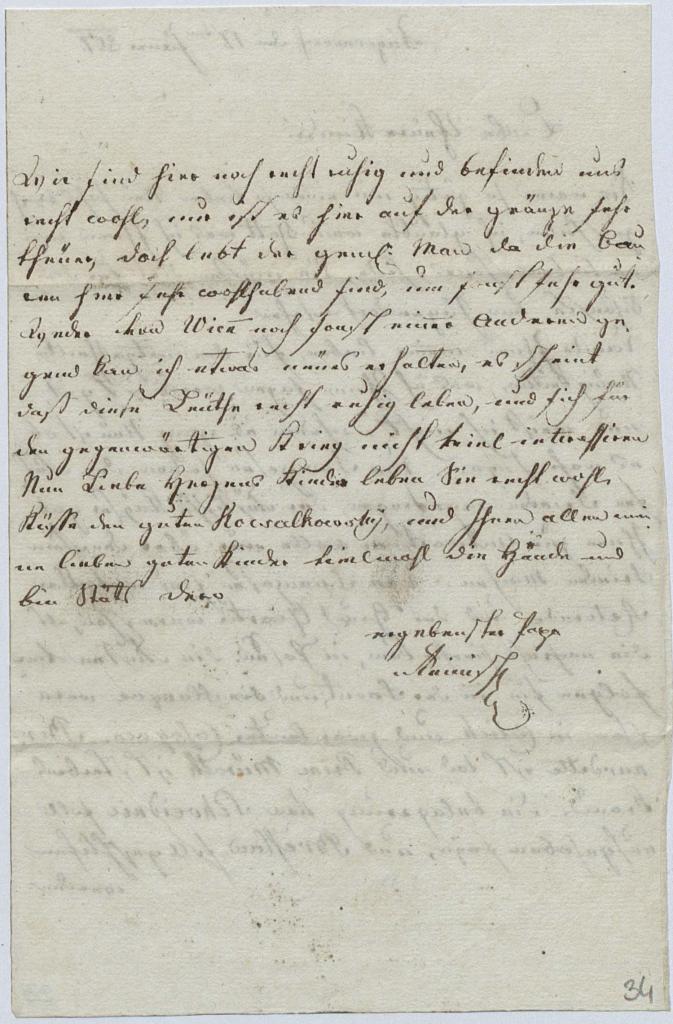 Wir sind hier noch recht ruhig und befinden uns
recht wohl, nur ist es hier auf der gränze sehr
theuer, doch lebt der gem: Man da die bau
ren hier sehr wohlhabend sind, um sonst sehr gut.
Weder von Wien noch sonst einer anderen ge
gend kan ich etwas neues erhalten, es scheint
daß diese Leüthe recht ruhig leben, und sich für
den gegenwärtigen Krieg nicht viel interessiren
Nun Liebe Herzens Kinder leben Sie recht wohl,
Küsse den guten Kowalkowsky, und Ihnen allen mei
ne lieben guten Kinder vielmahl die Hände und
bin Stäts dero
ergebenster Papa
34